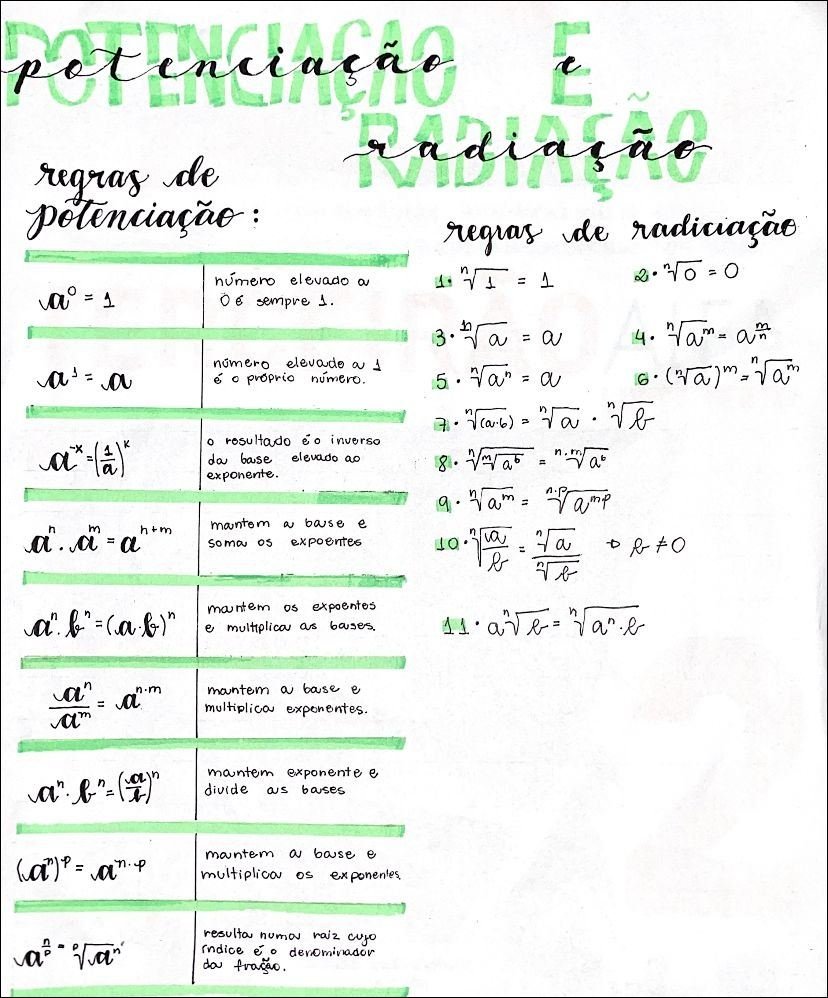 potenciação e
POTENCIAÇÃO E
radiação
RADIAÇÃO
regras de
potenciação:
a⁰ = 1
número elevado a
0 é sempre 1.
a¹ = a
número elevado a 1
é o próprio número.
a⁻ˣ = (1/a)ᵏ
o resultado é o inverso
da base elevado ao
exponente.
aⁿ . aᵐ = aⁿ⁺ᵐ
mantem a base e
soma os expoentes
aⁿ . bⁿ = (a.b)ⁿ
mantem os expoentes
e multiplica as bases.
aⁿ/aᵐ = aⁿ·ᵐ
mantem a base e
multiplica exponentes.
aⁿ . bⁿ = (a/b)ⁿ
mantem exponente e
divide as bases
(aⁿ)ᵖ = aⁿ·ᵖ
mantem a base e
multiplica os exponentes.
a^(n/p) = ᵖ√aⁿ
resulta numa raiz cujo
índice é o denominador
da fração.
regras de radiciação
1. ⁿ√1 = 1
2. ⁿ√0 = 0
3. ¹√a = a
4. ⁿ√aᵐ = a^(m/n)
5. ⁿ√aⁿ = a
6. (ⁿ√a)ᵐ = ⁿ√aᵐ
7. ⁿ√(a.b) = ⁿ√a . ⁿ√b
8. ⁿ√ᵐ√aᵇ = ⁿ·ᵐ√aᵇ
9. ⁿ√aᵐ = ⁿ·ᵖ√aᵐᵖ
10. ⁿ√(a/b) = ⁿ√a/ⁿ√b → b ≠ 0
11. aⁿ√b = ⁿ√aⁿ.b